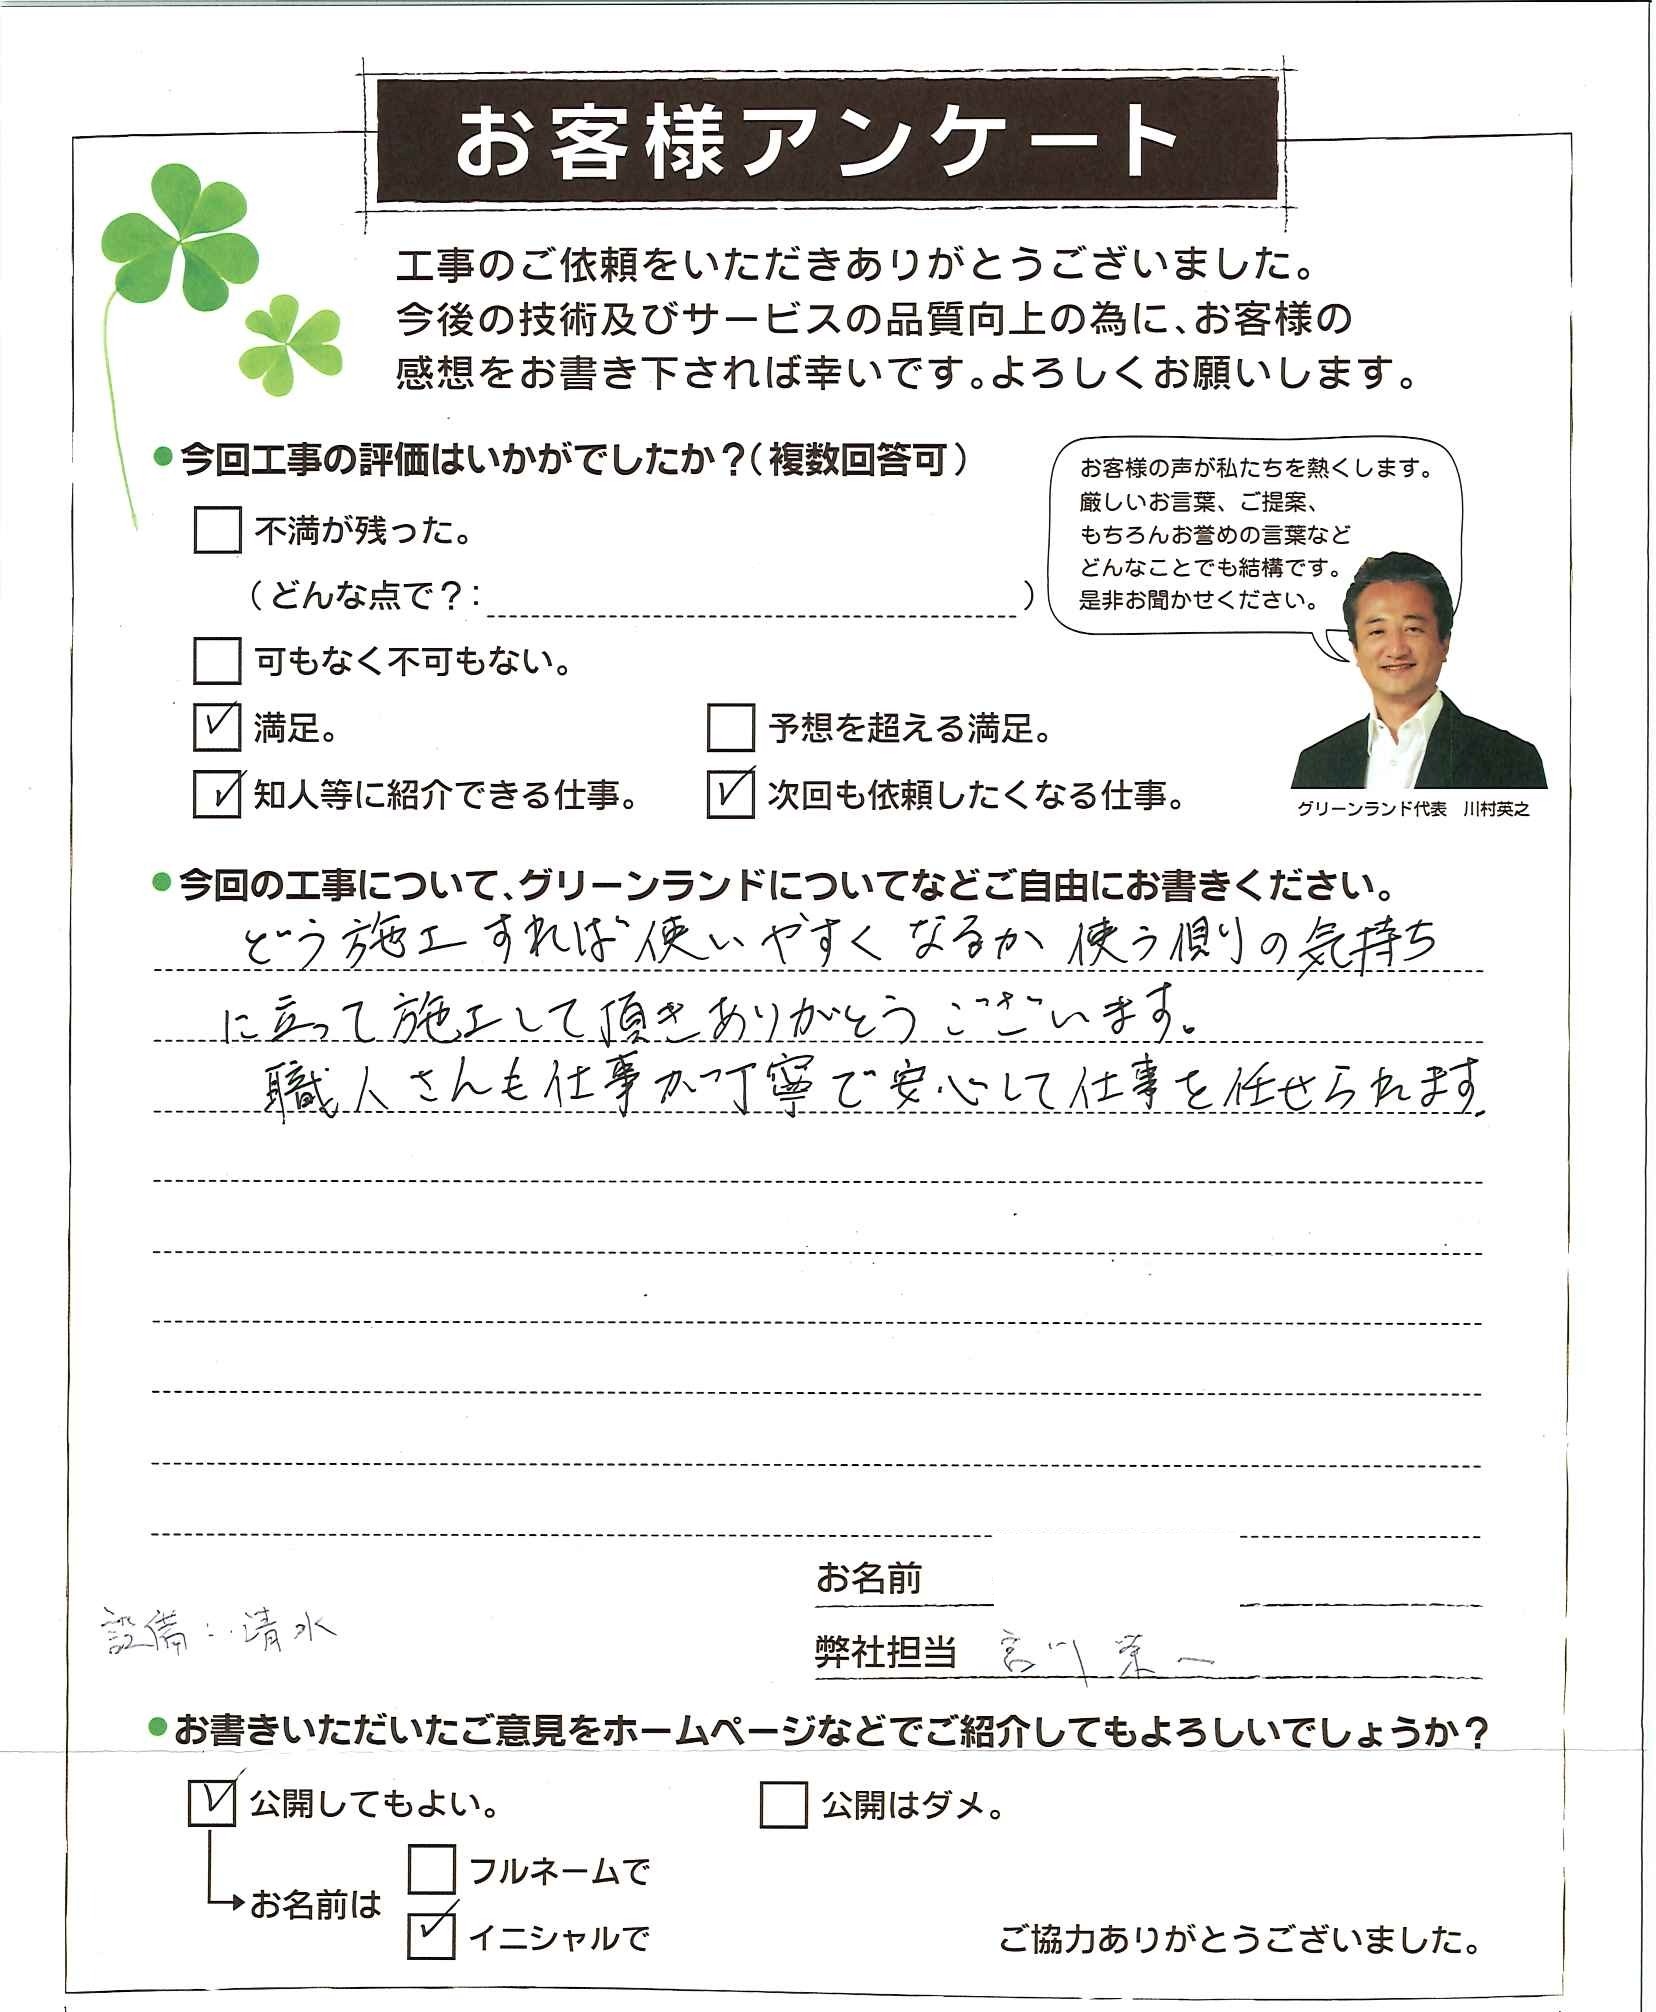 お客様アンケート
工事のご依頼をいただきありがとうございました。
今後の技術及びサービスの品質向上の為に、お客様の
感想をお書き下されば幸いです。よろしくお願いします。
●今回工事の評価はいかがでしたか？（複数回答可）
不満が残った。
（どんな点で？：　）
可もなく不可もない。
満足。
予想を超える満足。
知人等に紹介できる仕事。
次回も依頼したくなる仕事。
お客様の声が私たちを熱くします。
厳しいお言葉、ご提案、
もちろんお誉めの言葉など
どんなことでも結構です。
是非お聞かせください。
グリーンランド代表　川村英之
●今回の工事について、グリーンランドについてなどご自由にお書きください。
どう施工すれば使いやすくなるか使う側りの気持ち
に立って施工して頂きありがとうございます。
職人さんも仕事が丁寧で安心して仕事を任せられます。
お名前
設備：清水
弊社担当　宮川 栄一
●お書きいただいたご意見をホームページなどでご紹介してもよろしいでしょうか？
公開してもよい。
公開はダメ。
お名前は
フルネームで
イニシャルで
ご協力ありがとうございました。